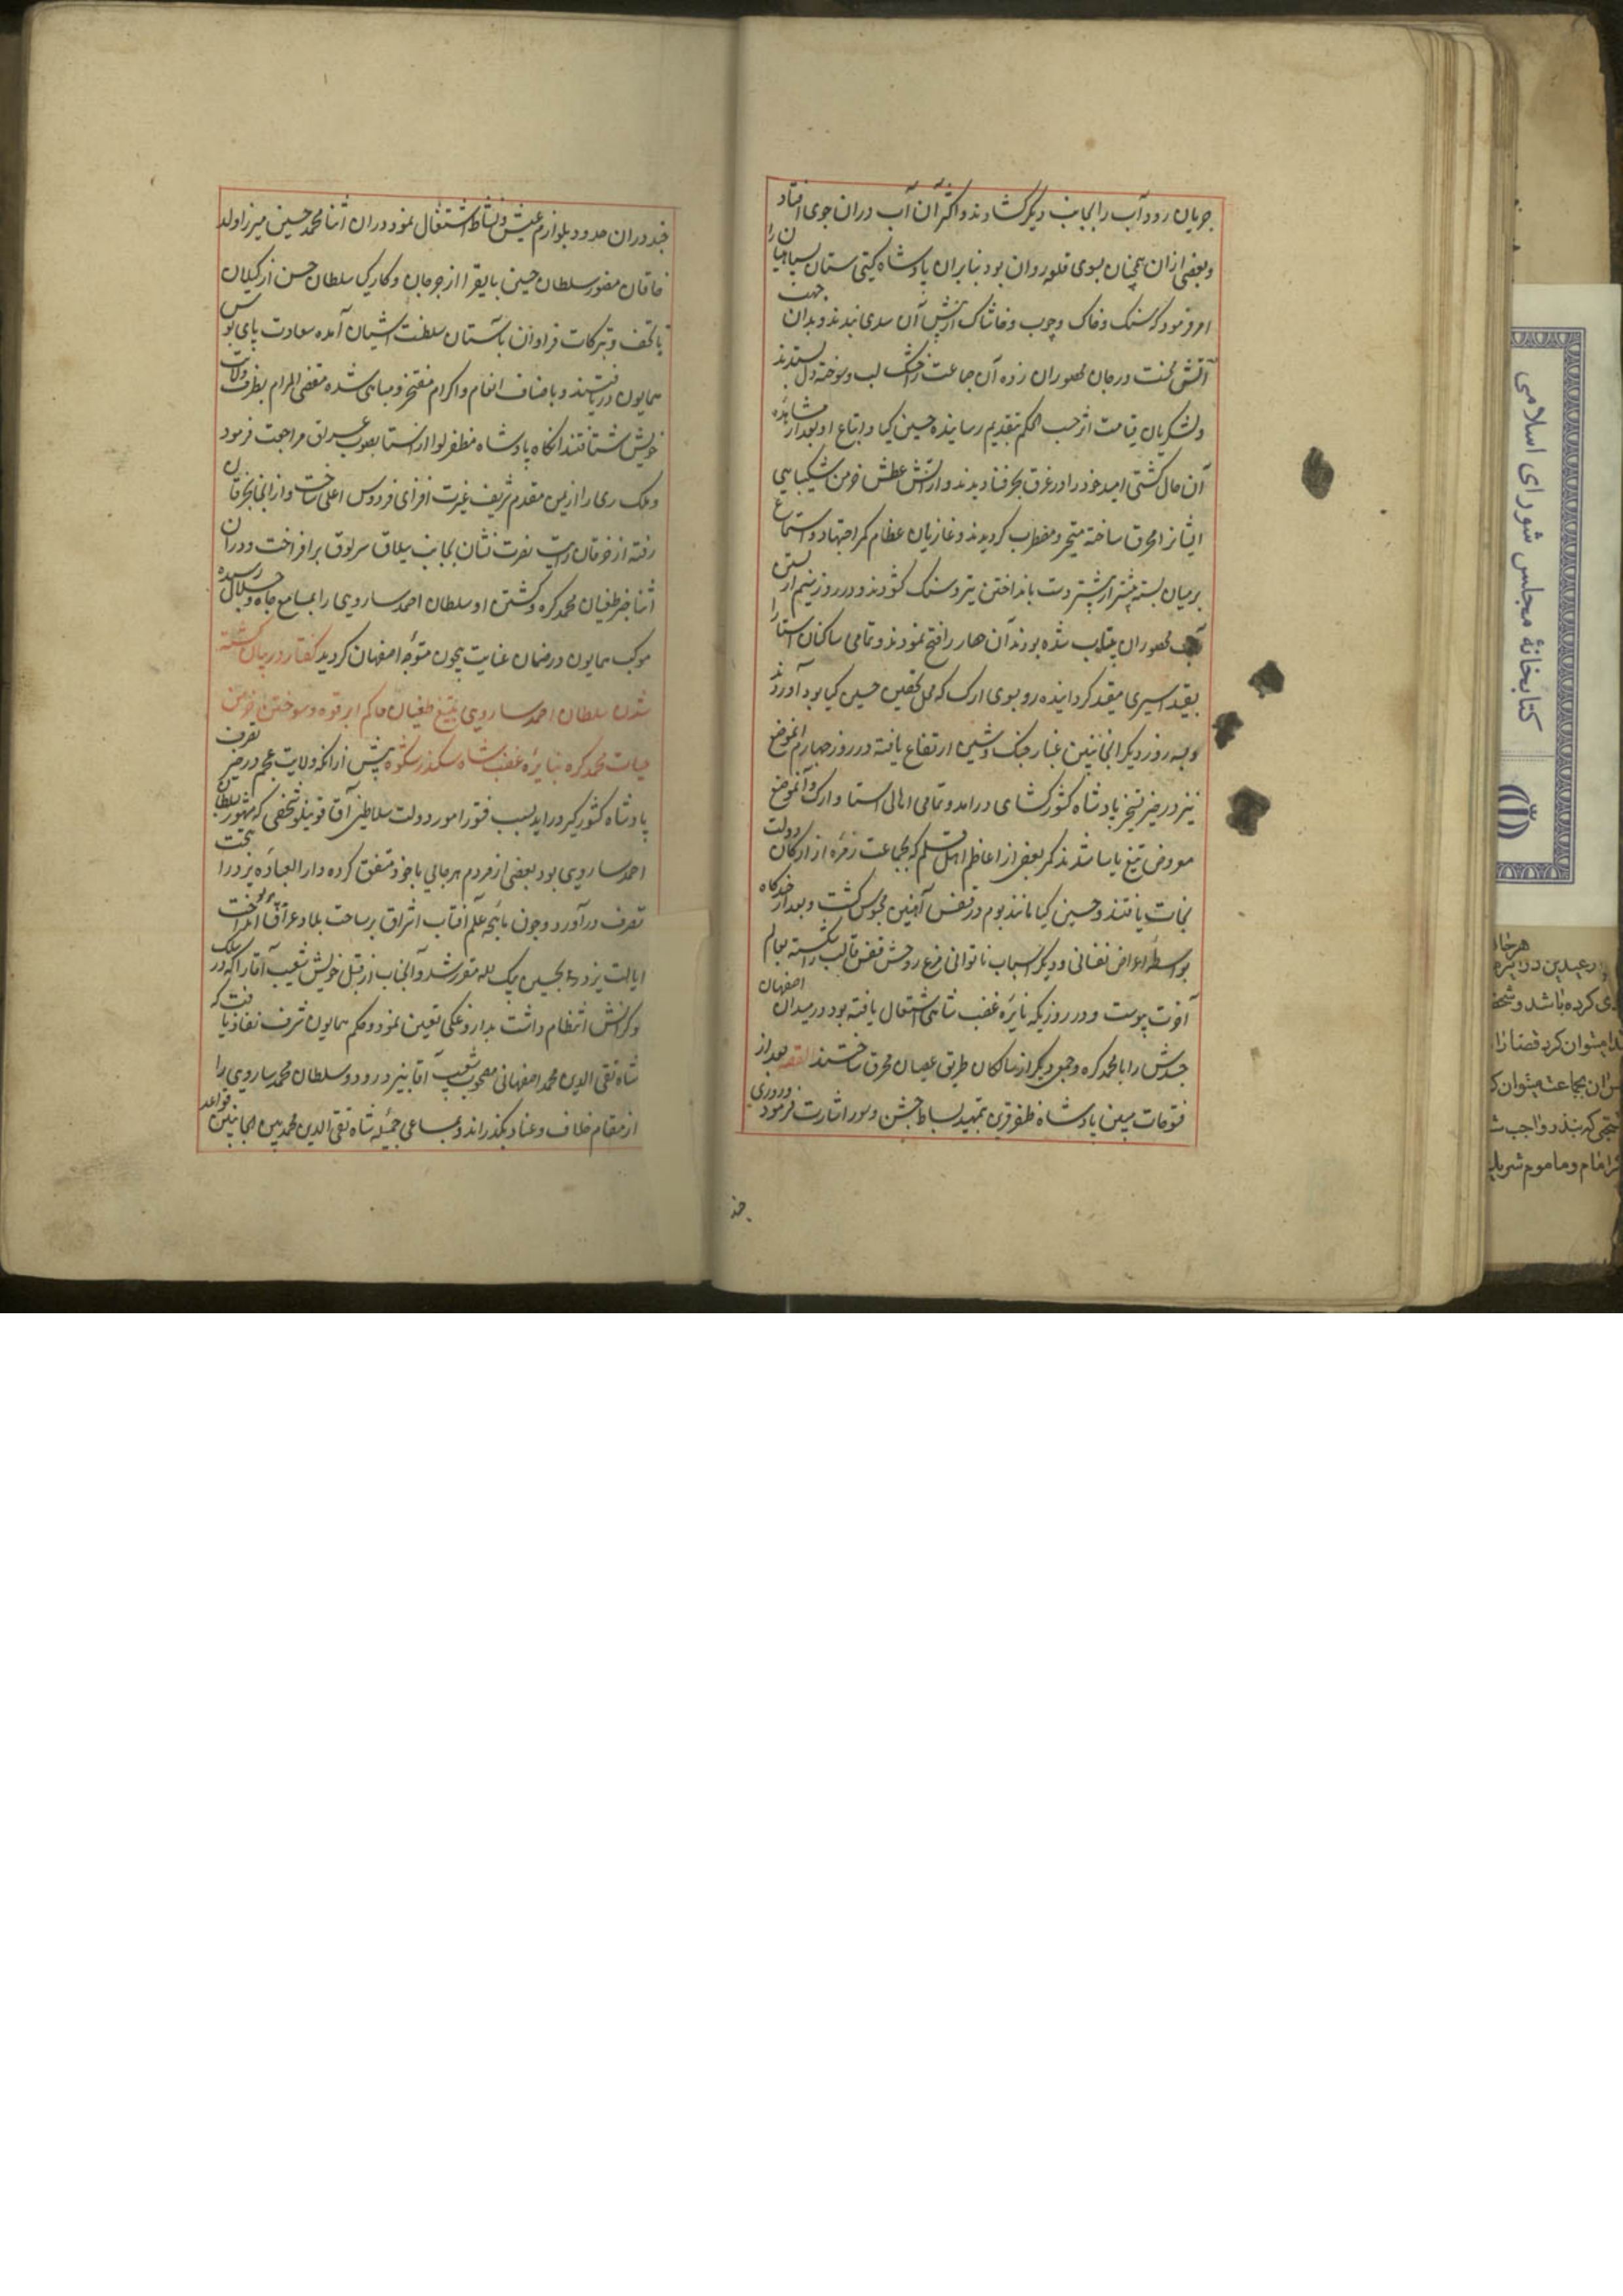 جریان رود آب را بجانب دیکر کشادند و اکثر آن آب دران جوی افتاد
و بعضی ازان همچنان بسوی قلعه روان بود بنابران پادشاه کیتی ستان سپاهیان را
امر فرمود که سنک و خاک و چوب و خاشاک آن سدی بندند و بدان جهت
آتش محنت در جان محصوران زده آن جماعت را خشک لب و سوخته دل پسندند
و لشکریان قیامت اثر حسب الحکم بتقدیم رسانیده حسین کیا و اتباع او بعد از مشاهده
آن حال کشتی امید خود را در غرق بحر فنا دیدند و از آتش عطش خرمن شکیبایی
ایشانرا محرق ساخته متحیر و مضطرب کردیدند و غازیان عظام کمر اجتهاد و
بر میان بسته بیشتر از پیشتر دست بانداختن تیر و سنک کشودند و در روز نیم از بستن
آب محصوران بیتاب شده بودند آن حصار را فتح نمودند و تمامی ساکنان استا را
بقید اسیری مقید کردانیده رو بسوی ارک که محل تحصن حسین کیا بود آوردند
و سه روز دیکر از جانبین غبار جنک و شین ارتفاع یافته در روز چهارم آنموضع
نیز در حیز تسخیر پادشاه کشورکشای درامد و تمامی اهالی استا و ارک و آنموضع
معروض تیغ یاسا شدند مکر بعضی از اعاظم اهل قلم که بجماعت زمره از ارکان دولت
نجات یافتند و حسین کیا مانند بوم در قفس آهنین محبوس کشت و بعد از چندکاه
بواسطه اعراض نفسانی و دیکر اسباب ناتوانی مرغ روحش قفس قالب را شکسته بعالم
آخرت پیوست و در روزیکه نایره غضب شاهی اشتعال یافته بود در میدان اصفهان
جسدش را با محمد کره و جمعی دیکر از سالکان طریق عصیان محرق ساختند القصه بعد از
فتوحات مبین پادشاه ظفر قرین بتمهید بساط جشن و سور اشارت فرمود و روزی
چند
چند دران حدود بلوازم عیش و نشاط اشتغال نمود دران اثنا محمد حسین میرزا ولد
خاقان مغفور سلطان حسین بایقرا از جرجان و کارکیا سلطان حسن از کیلان
با تحف و تبرکات فراوان بآستان سلطنت آشیان آمده سعادت پای بوس
همایون دریافتند و باصناف انعام و اکرام مفتخر و مباهی شده مقضی المرام بطرف ولایت
خویش شتافتند انکاه پادشاه مظفر لوا از استا بصوب عراق مراجعت فرمود
و ملک ری را از یمن مقدم شریف غیرت افزای فردوس اعلی ساخت و از انجا بخرقان
رفته از خرقان رایت نصرت نشان بجانب ییلاق سرلوق برافراخت و دران
اثنا خبر طغیان محمد کره و کشتن او سلطان احمد ساروی را بمسامع جاه و جلال رسیده
موکب همایون در ضمان عنایت بیچون متوجه اصفهان کردید کفتار در بیان کشته
شدن سلطان احمد ساروی بتیغ طغیان حاکم ابرقوه و سوختن خرمن
حیات محمد کره بنایره غضب شاه سکندر شکوه پیش ازانکه ولایت عجم در حیز تصرف
پادشاه کشورکیر دراید بسبب فتور امور دولت سلاطین آق قوینلو شخصی که مشهور بسلطان
احمد ساروی بود بعضی از مردم هرجایی با خود متفق کرده دار العباده یزد را تحت
تصرف درآورد و چون ماهچه علم آفتاب اشراق بر ساحت بلاد عراق پرتو انداخت
ایالت یزد بحسین بیک لله مقرر شد و آنجناب از قبل خویش شعیب آقا را که در سلک
نوکرانش انتظام داشت بداروغکی تعیین نمود و حکم همایون شرف نفاذ یافت که
شاه تقی الدین محمد اصفهانی مصحوب شعیب آقا بیزد رود و سلطان محمد ساروی را
از مقام خلاف و عناد بکذراند و بمساعی جمیله شاه تقی الدین محمد بین الجانبین قواعد
کتابخانهٔ مجلس شورای اسلامی